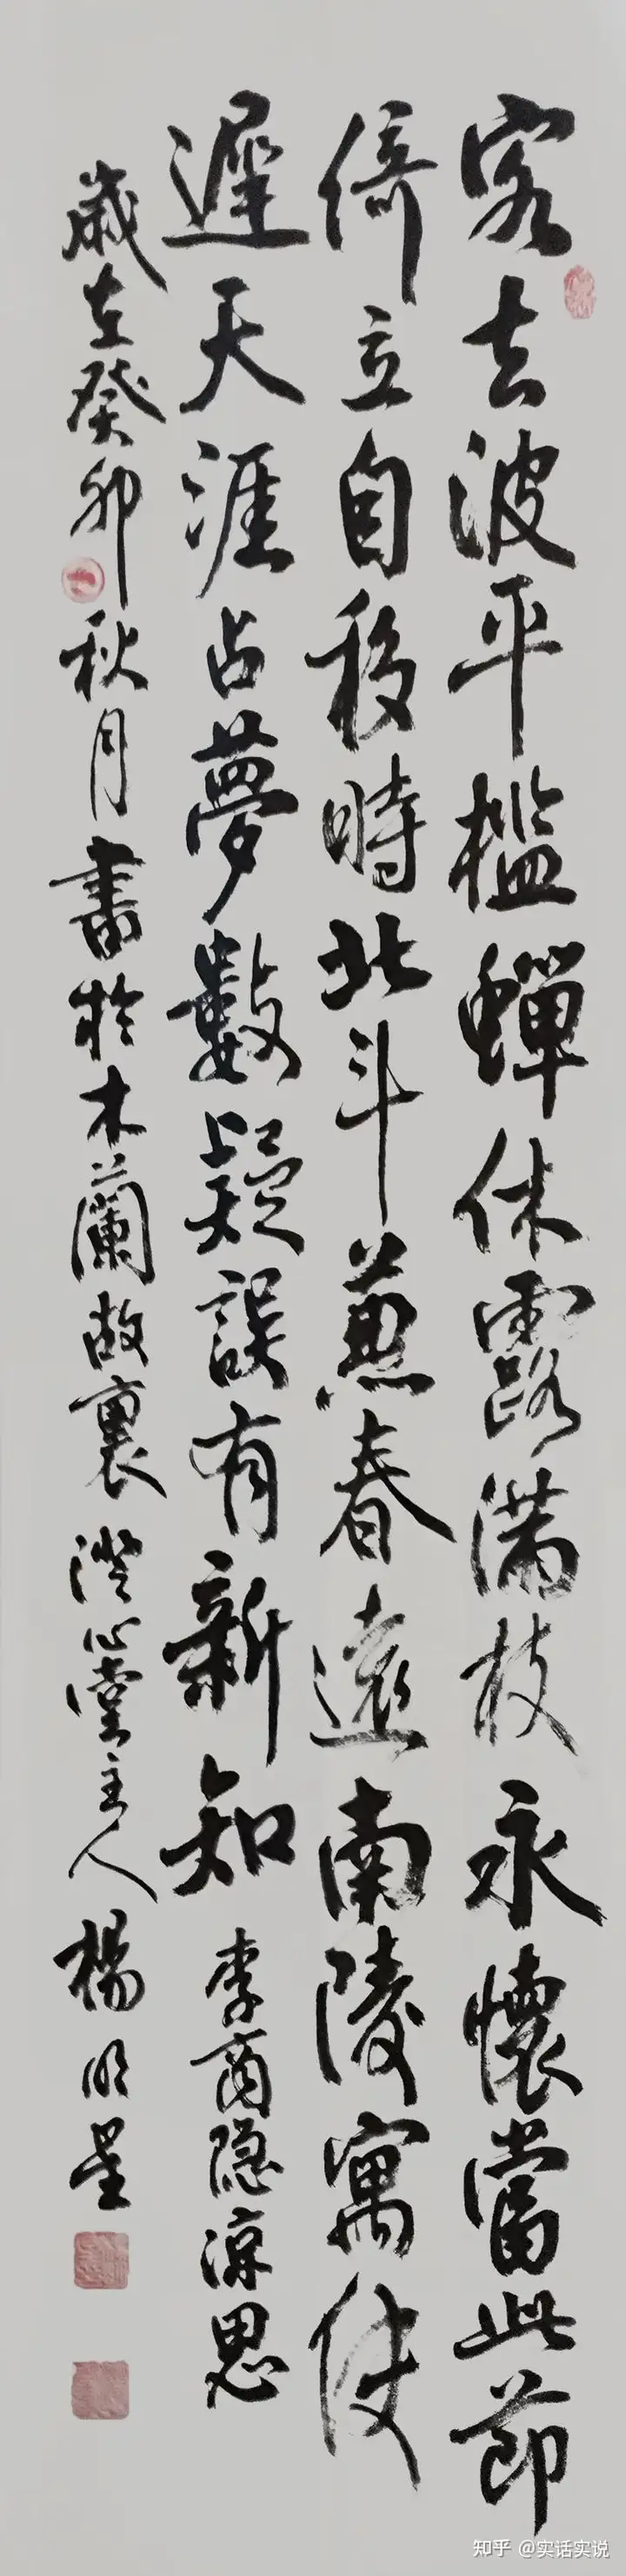 客去波平檻蟬休露滿枝永懷當此節
倚立自移時北斗兼春遠南陵寓使
遲天涯占夢數疑誤有新知 李商隐涼思
歲在癸卯秋月書於木蘭故裏澄心堂主人楊明星
知乎 @实话实说